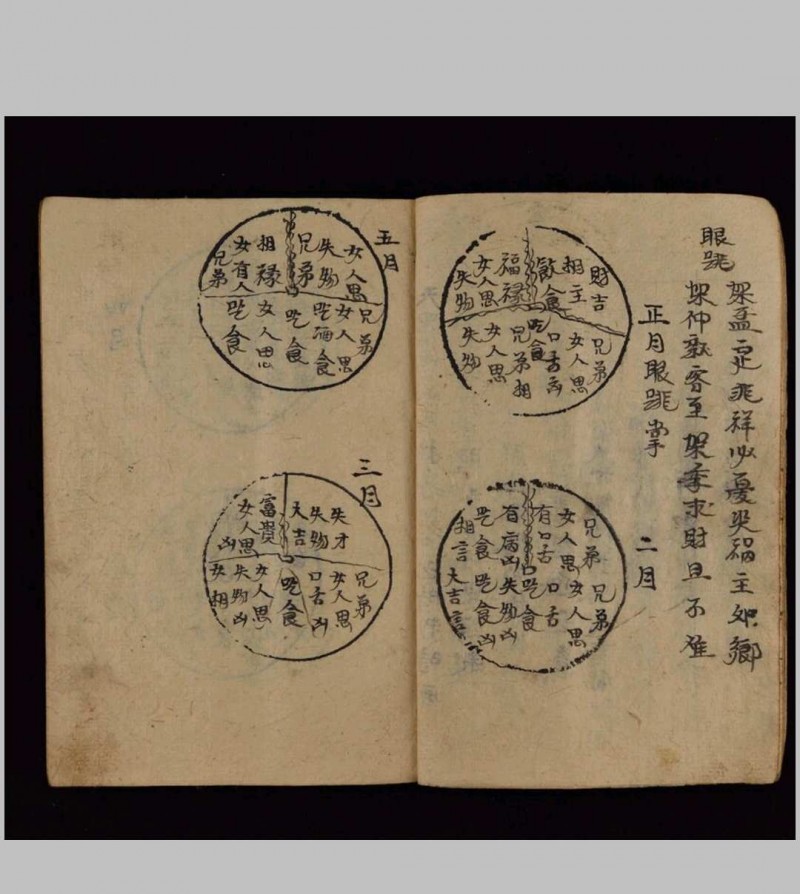 眼跳
架孟定兆祥必憂災禍主如鄉
架仲 客至架季求財且不准
正月眼跳掌
財吉
相主
飲食
福禄
女人思
失物
兄弟
女人思
口舌凶
吃食
兄弟相
女人思
失物
二月
兄弟
女人思
有口舌
有病凶
吃食
相言
兄弟
女人思
口舌
吃食
失物凶
吃食凶
大吉言
五月
女人思
失物
兄弟
相禄
女有人
兄弟
兄弟
女人思
吃酒食
吃食
女人思
吃食
三月
失才
失物
大吉
富貴
女人思
凶
兄弟
女人思
口舌凶
吃食
女人思
失物凶
女相